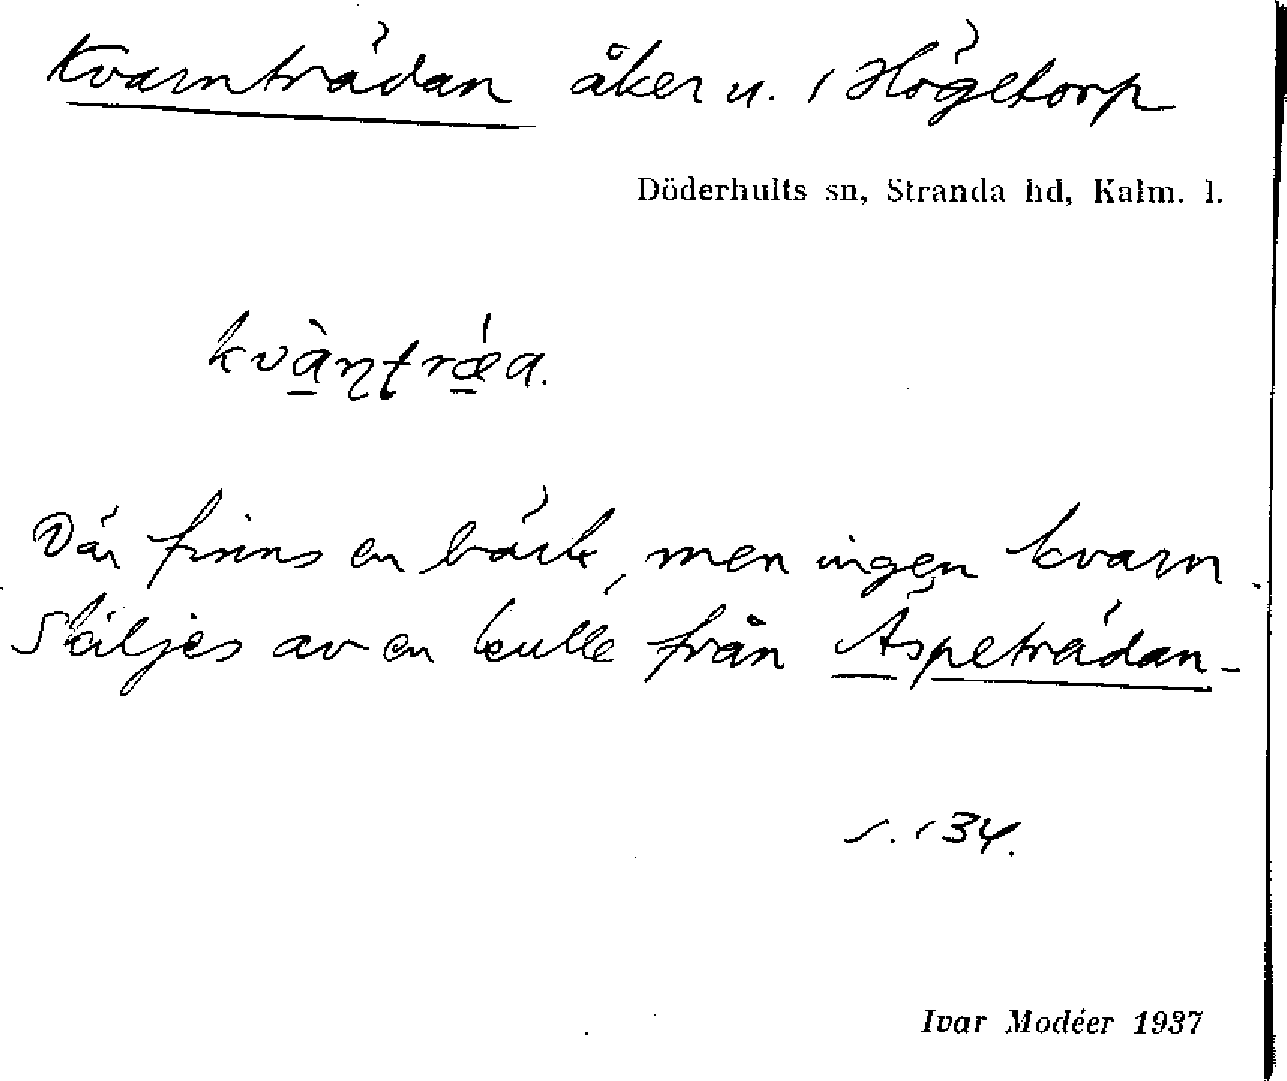 Kvarnträdan åker u. 1 Högetorp
Döderhults sn, Stranda hd, Kalm. l.
kvànt̨rǽa.
Där finns en bäck, men ingen kvarn.
Skiljes av en kulle från Äspeträdan.
s. 134.
Ivar Modéer 1937